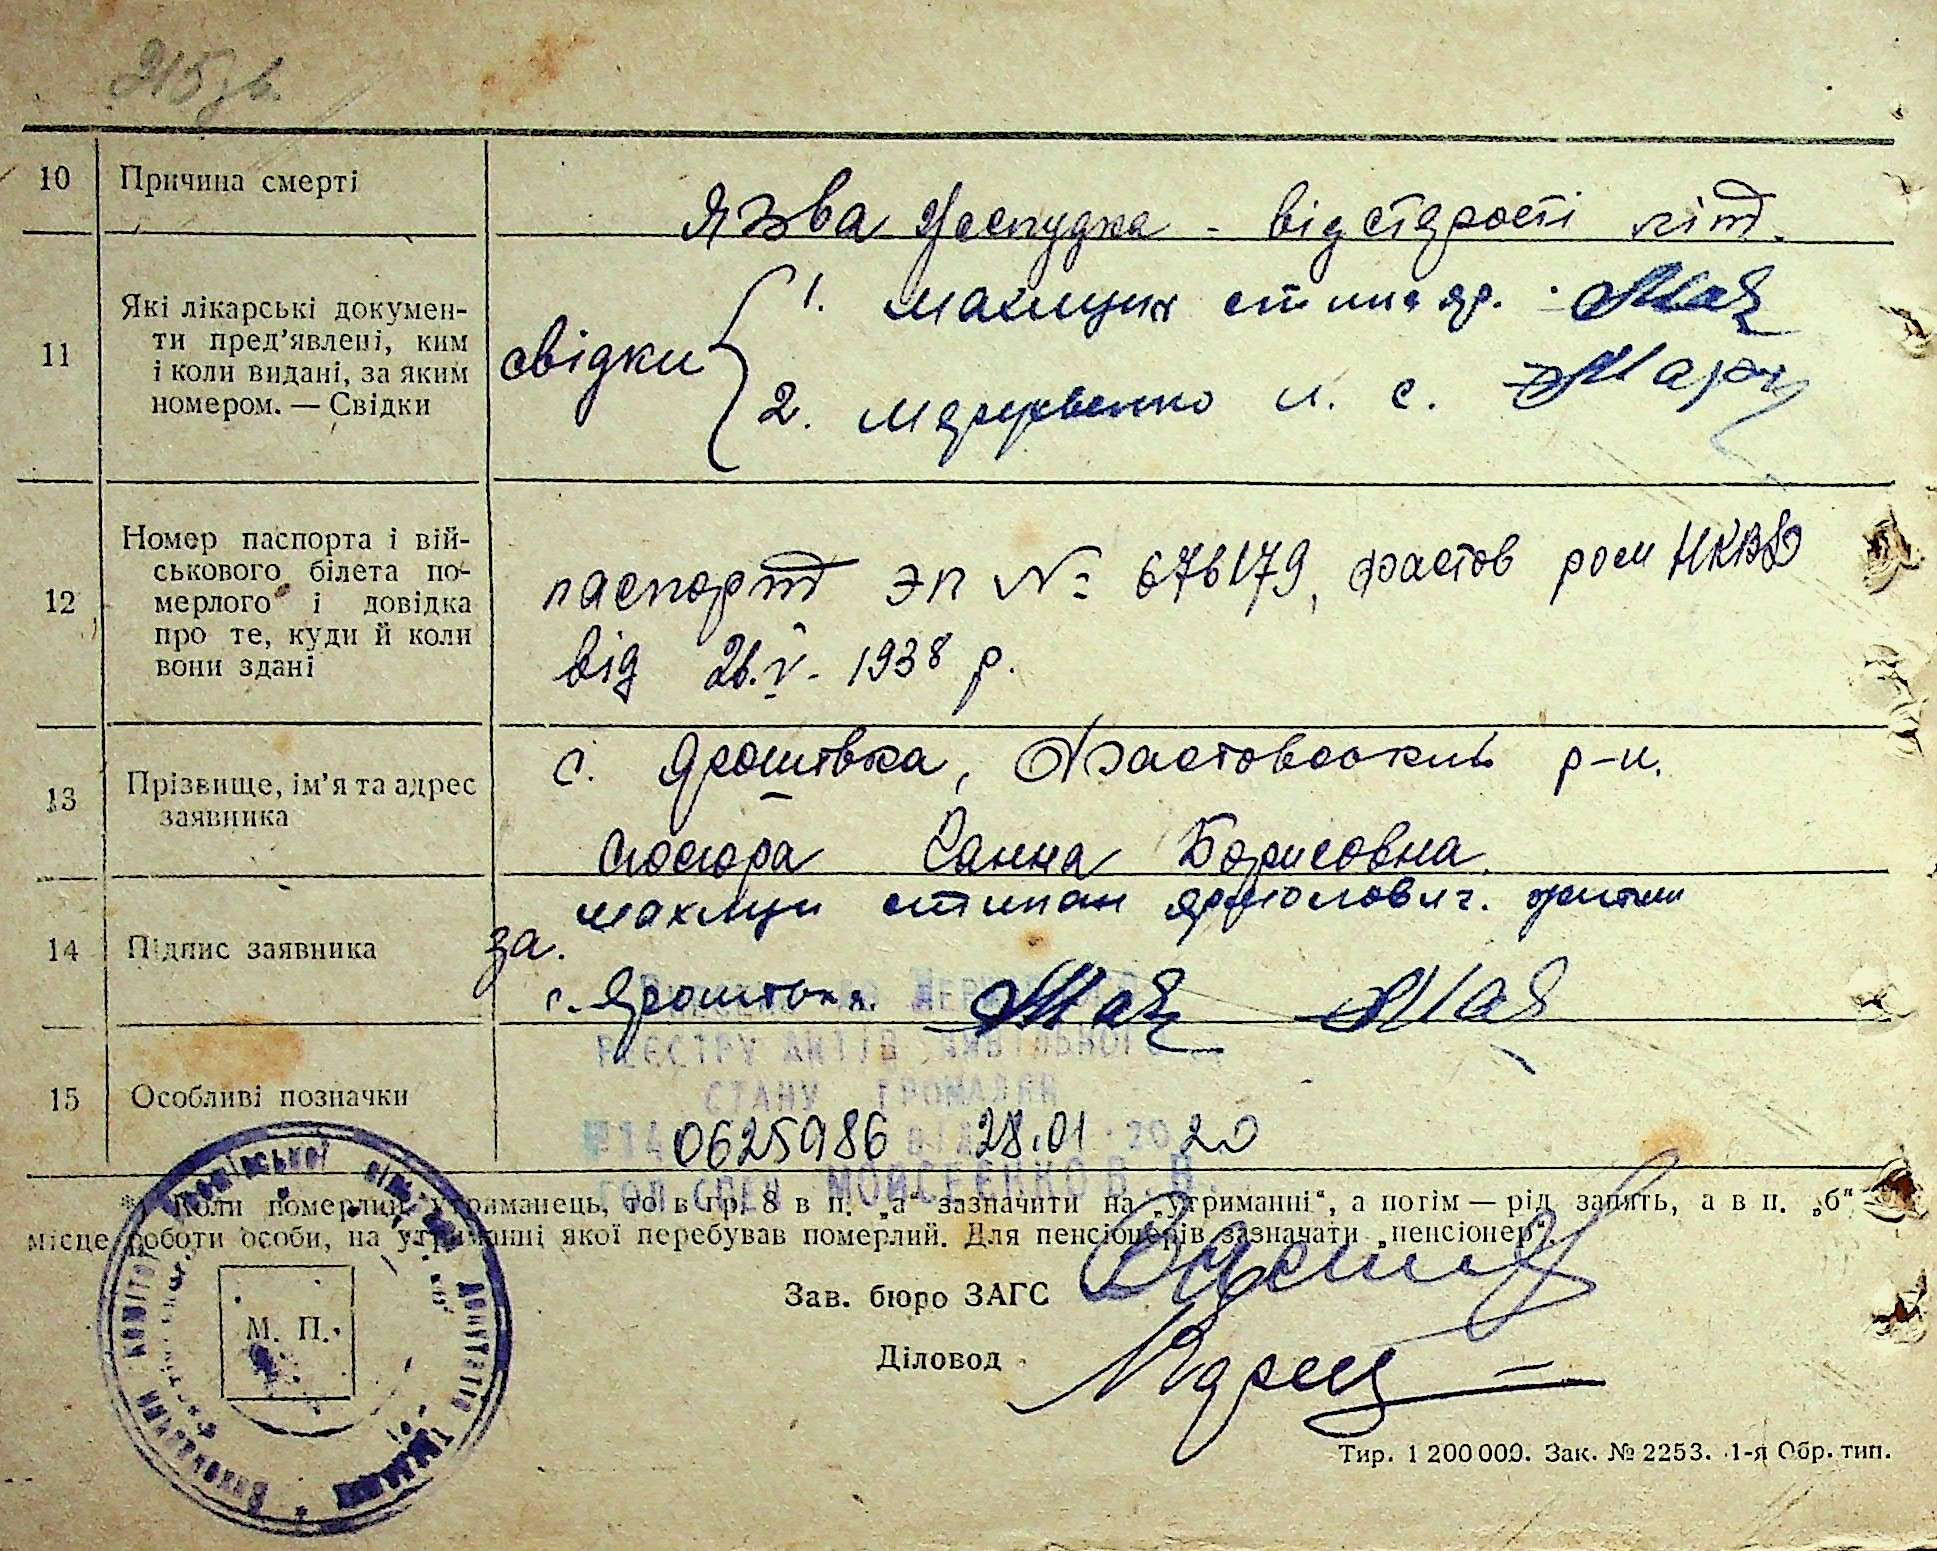 215 зв.
10 Причина смерті
Язва Жолудка - від старості літ.
11 Які лікарські докумен-
ти пред'явлені, ким
і коли видані, за яким
номером. — Свідки
свідки
1. Махлиця
2. М. С.
12 Номер паспорта і вій-
ськового білета по-
мерлого і довідка
про те, куди й коли
вони здані
паспорт ЭП № 676179, Фастов НКВД
від 26.V. 1938 р.
13 Прізвище, ім'я та адрес
заявника
с. Яроштвка, р-н.
Сюсюра Ганна Борисовна.
14 Підпис заявника
за.
с. Яроштвка.
15 Особливі позначки
ДЕРЖАВНОГО
РЕЄСТРУ АКТІВ ЦИВІЛЬНОГО
СТАНУ ГРОМАДЯН
0625986 від 28.01 2020
ГОЛ СПЕЦ МОЙСЕЄНКО В. В.
*) Коли померлий утриманець, то в гр. 8 в п. „а“ зазначити на „утриманні“, а потім — рід занять, а в п. „б“
місце роботи особи, на утриманні якої перебував померлий. Для пенсіонерів зазначати „пенсіонер“.
Зав. бюро ЗАГС
М. П.
Діловод
Тир. 1 200 000. Зак. № 2253. 1-я Обр. тип.